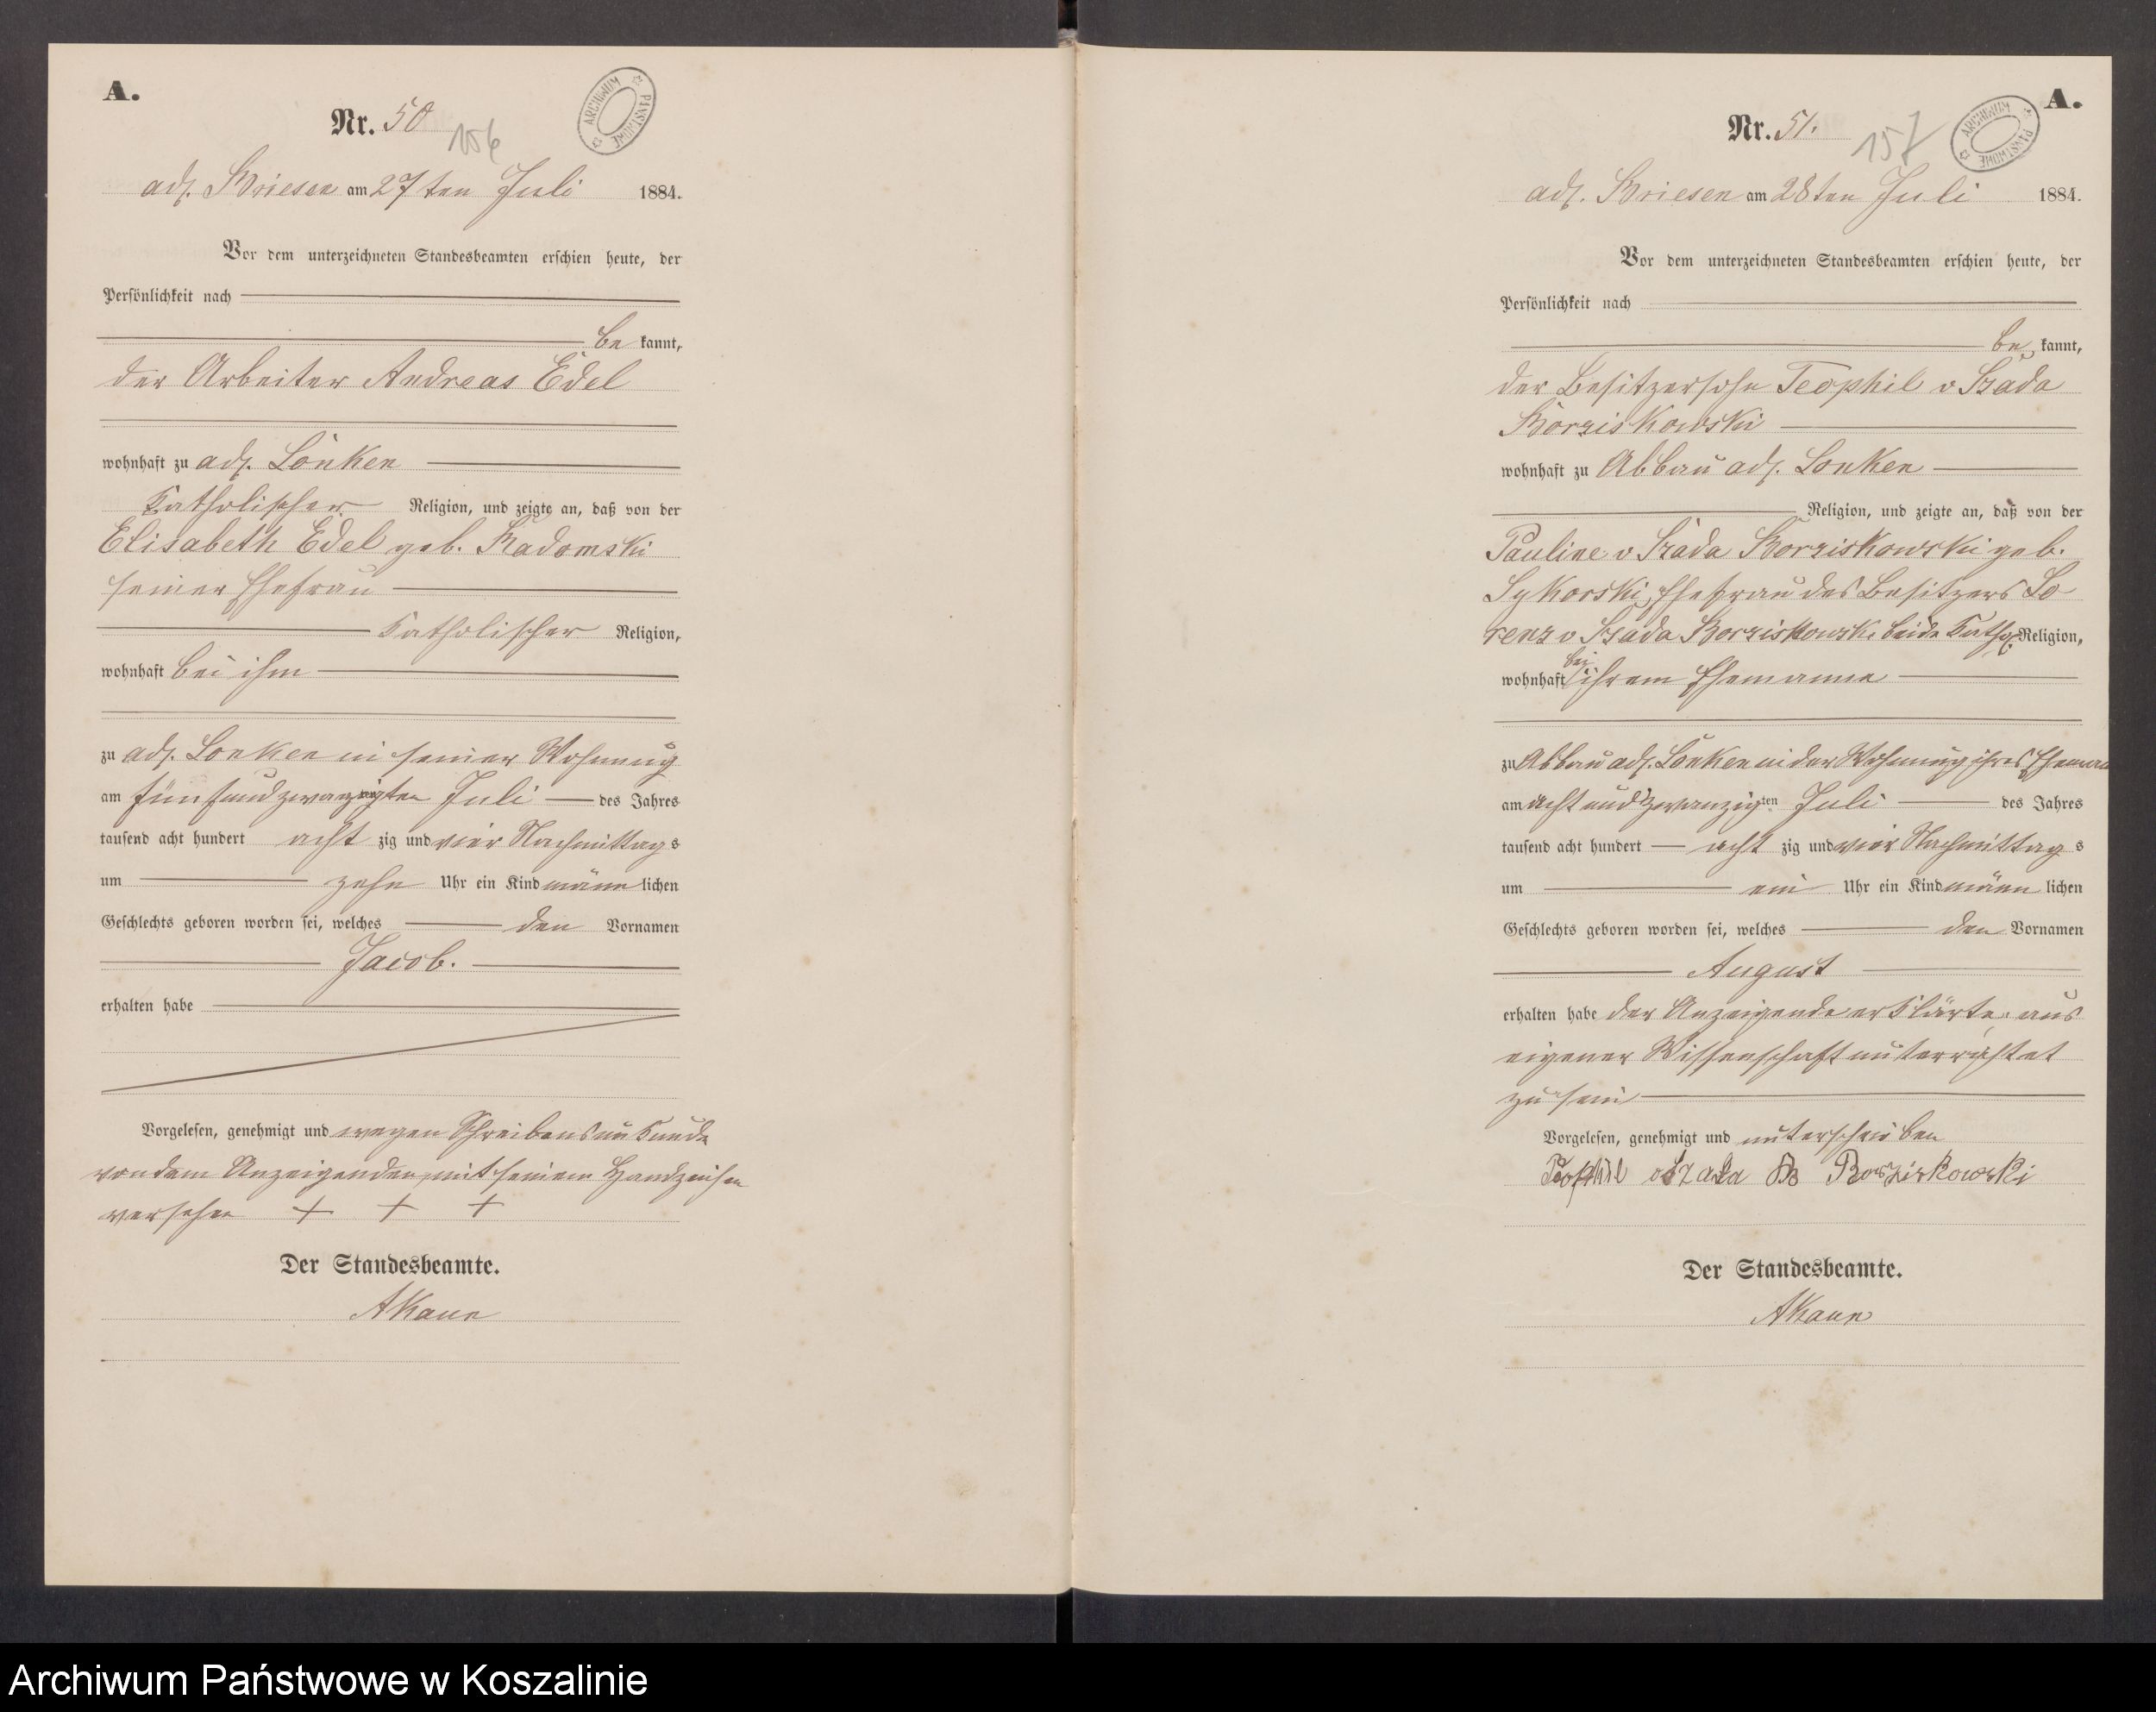 A.
Nr. 50
156
ARCHIWUM PAŃSTWOWE
adl. Briesen am 27ten Juli 1884.
Vor dem unterzeichneten Standesbeamten erschien heute, der
Persönlichkeit nach
be kannt,
der Arbeiter Andreas Edel
wohnhaft zu adl. Lonken
Katholischer Religion, und zeigte an, daß von der
Elisabeth Edel geb. Radomski
seiner Ehefrau
Katholischer Religion,
wohnhaft bei ihm
zu adl. Lonken in seiner Wohnung
am fünfundzwanzigten Juli des Jahres
tausend acht hundert acht zig und vier Nachmittag s
um zehn Uhr ein Kind männ lichen
Geschlechts geboren worden sei, welches den Vornamen
Jacob.
erhalten habe
Vorgelesen, genehmigt und wegen Schreibensunkunde
von dem Anzeigenden mit seinem Handzeichen
versehen + + +
Der Standesbeamte.
A.
Nr. 51.
157
ARCHIWUM PAŃSTWOWE
adl. Briesen am 28ten Juli 1884.
Vor dem unterzeichneten Standesbeamten erschien heute, der
Persönlichkeit nach
be kannt,
der Besitzersohn Teophil v Szada
Borziskowski
wohnhaft zu Abbau adl. Lonken
Religion, und zeigte an, daß von der
Pauline v Szada Borziskowski geb.
Sykorski, Ehefrau des Besitzers Lo
renz v Szada Borziskowski beide Kathol. Religion,
wohnhaft bei ihrem Ehemanne
zu Abbau adl. Lonken in der Wohnung ihres
am acht und zwanzigten Juli des Jahres
tausend acht hundert acht zig und vier Nachmittag s
um ein Uhr ein Kind männ lichen
Geschlechts geboren worden sei, welches den Vornamen
August
erhalten habe der Anzeigende erklärte, aus
eigener Wissenschaft unterrichtet
zu sein
Vorgelesen, genehmigt und unterschrieben
Borziskowski
Der Standesbeamte.
Archiwum Państwowe w Koszalinie